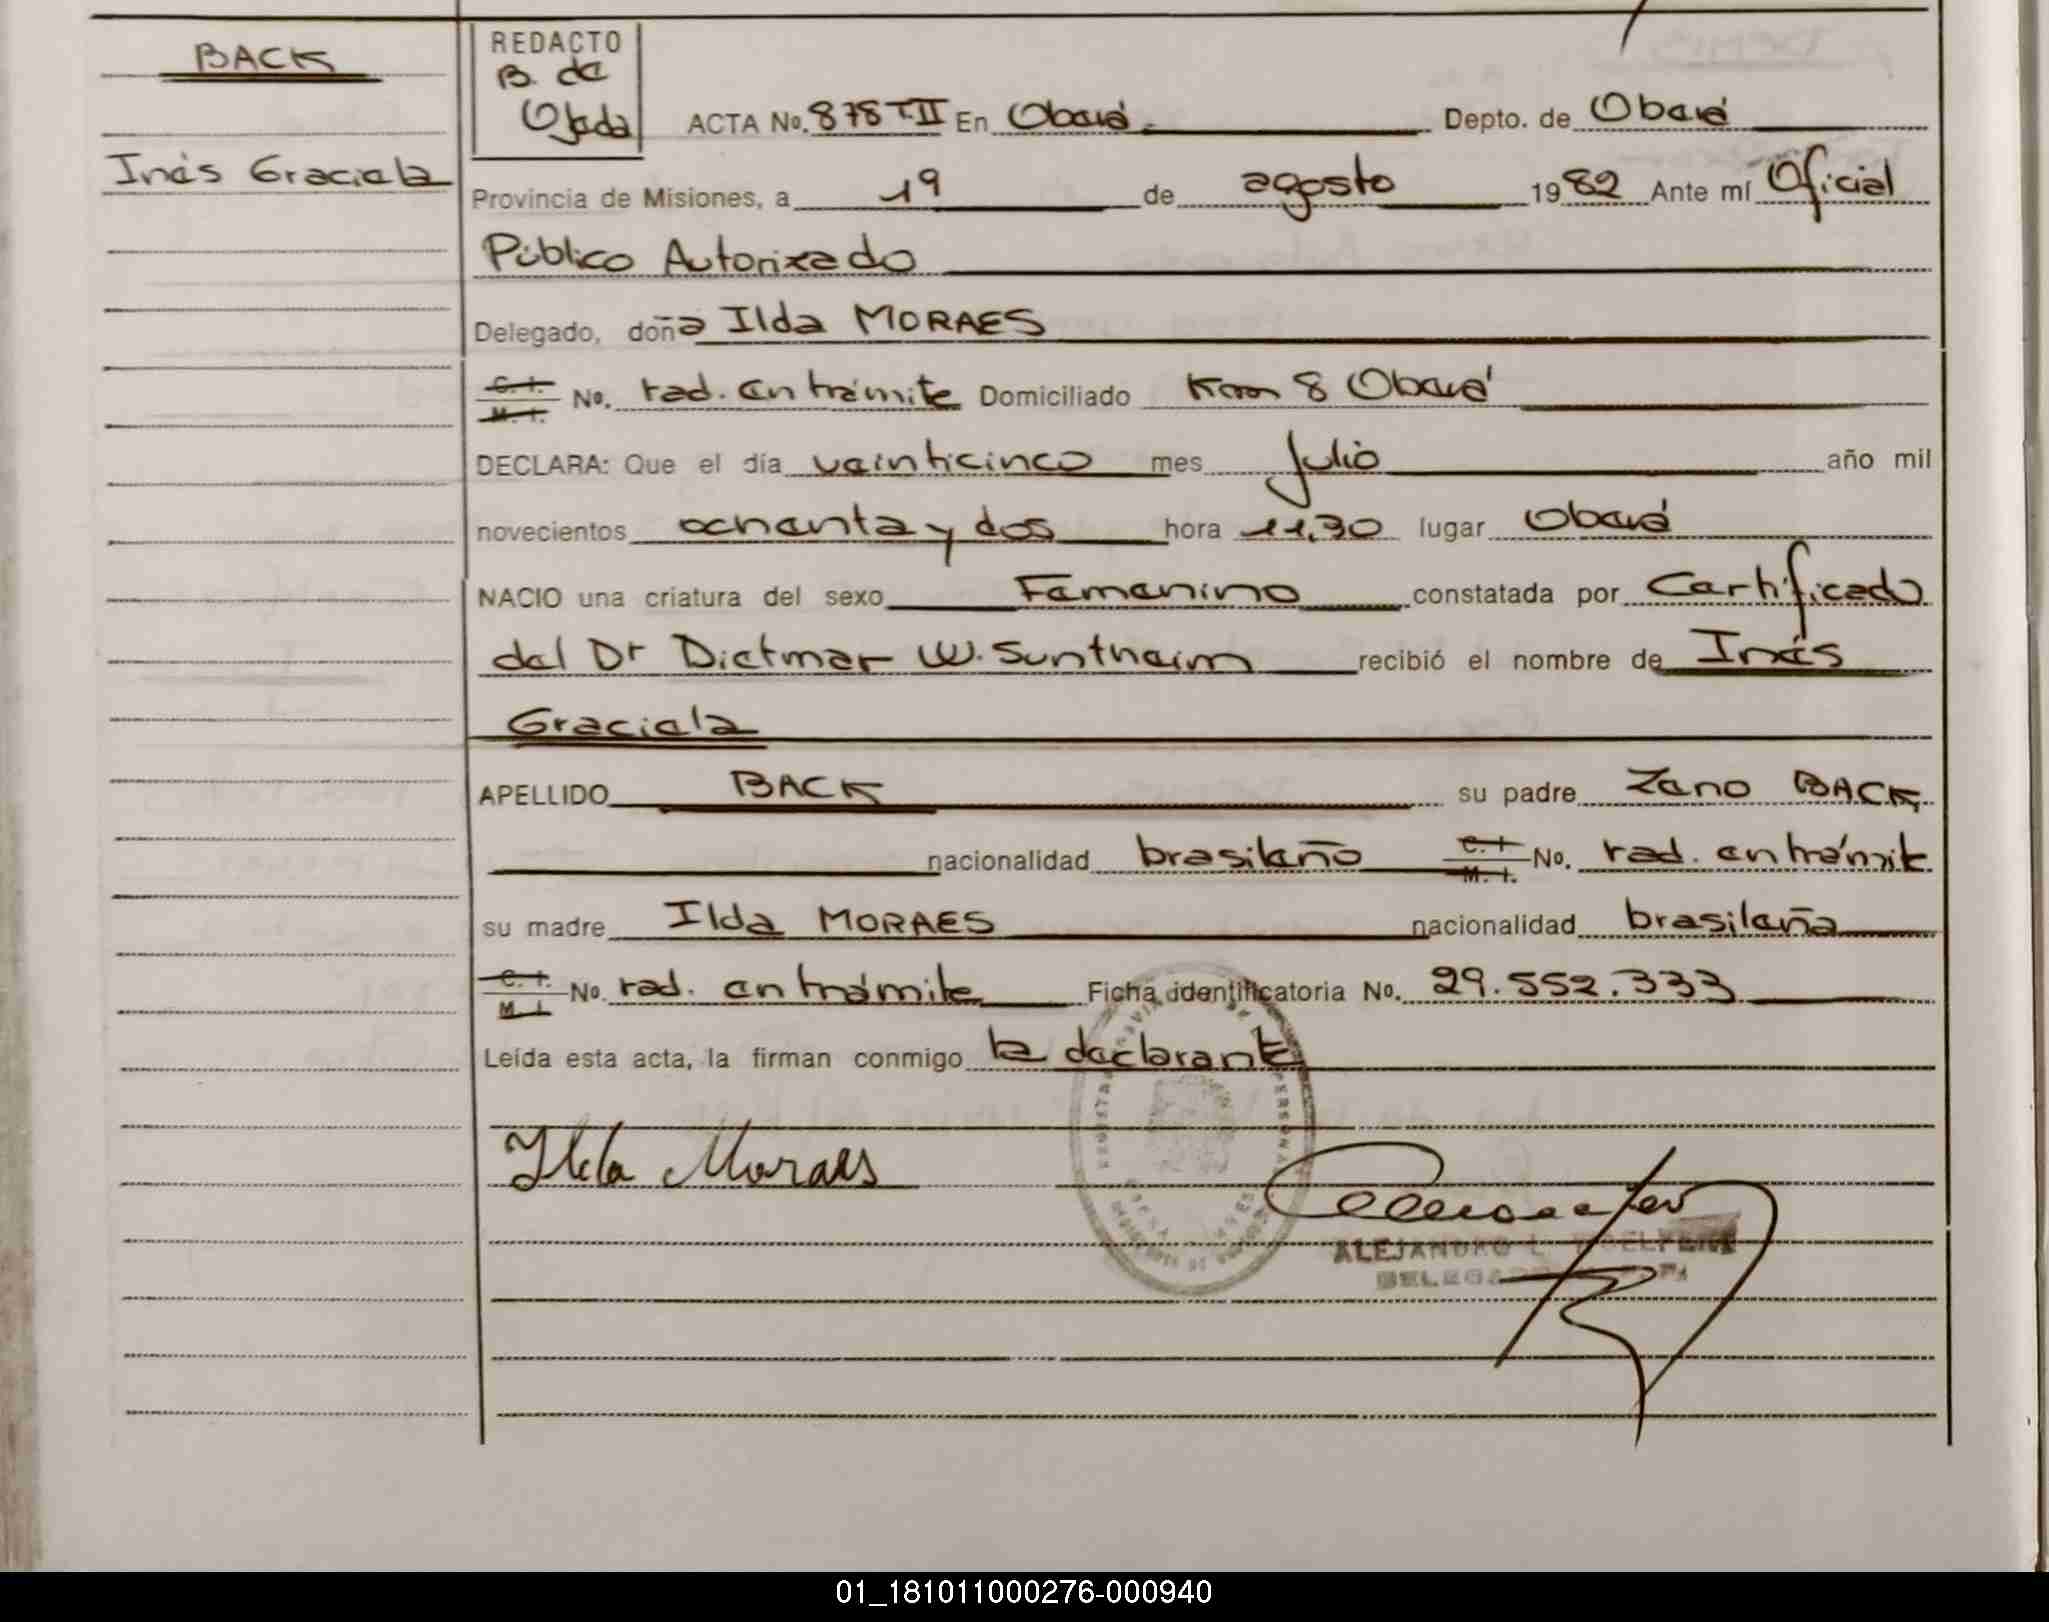 BACK
Inés Graciela
REDACTO
B. de
Ojeda
ACTA No. 878 T.II En Oberá Depto. de Oberá
Provincia de Misiones, a 19 de agosto 1982 Ante mí Oficial
Público Autorizado
Delegado, doña Ilda MORAES
C. I. M. I. No. rad. en trámite Domiciliado Km 8 Oberá
DECLARA: Que el día veinticinco mes Julio año mil
novecientos ochenta y dos hora 11,30 lugar Oberá
NACIO una criatura del sexo Femenino constatada por Certificado
del Dr Dietmar W. Suntheim recibió el nombre de Inés
Graciela
APELLIDO BACK su padre Zeno BACK,
nacionalidad brasileño C. I. M. I. No. rad. en trámite
su madre Ilda MORAES nacionalidad brasileña
C. I. M. I. No. rad. en trámite Ficha identificatoria No. 29.552.333
Leída esta acta, la firman conmigo la declarante
Ilda Moraes
ALEJANDRO L.
01_181011000276-000940